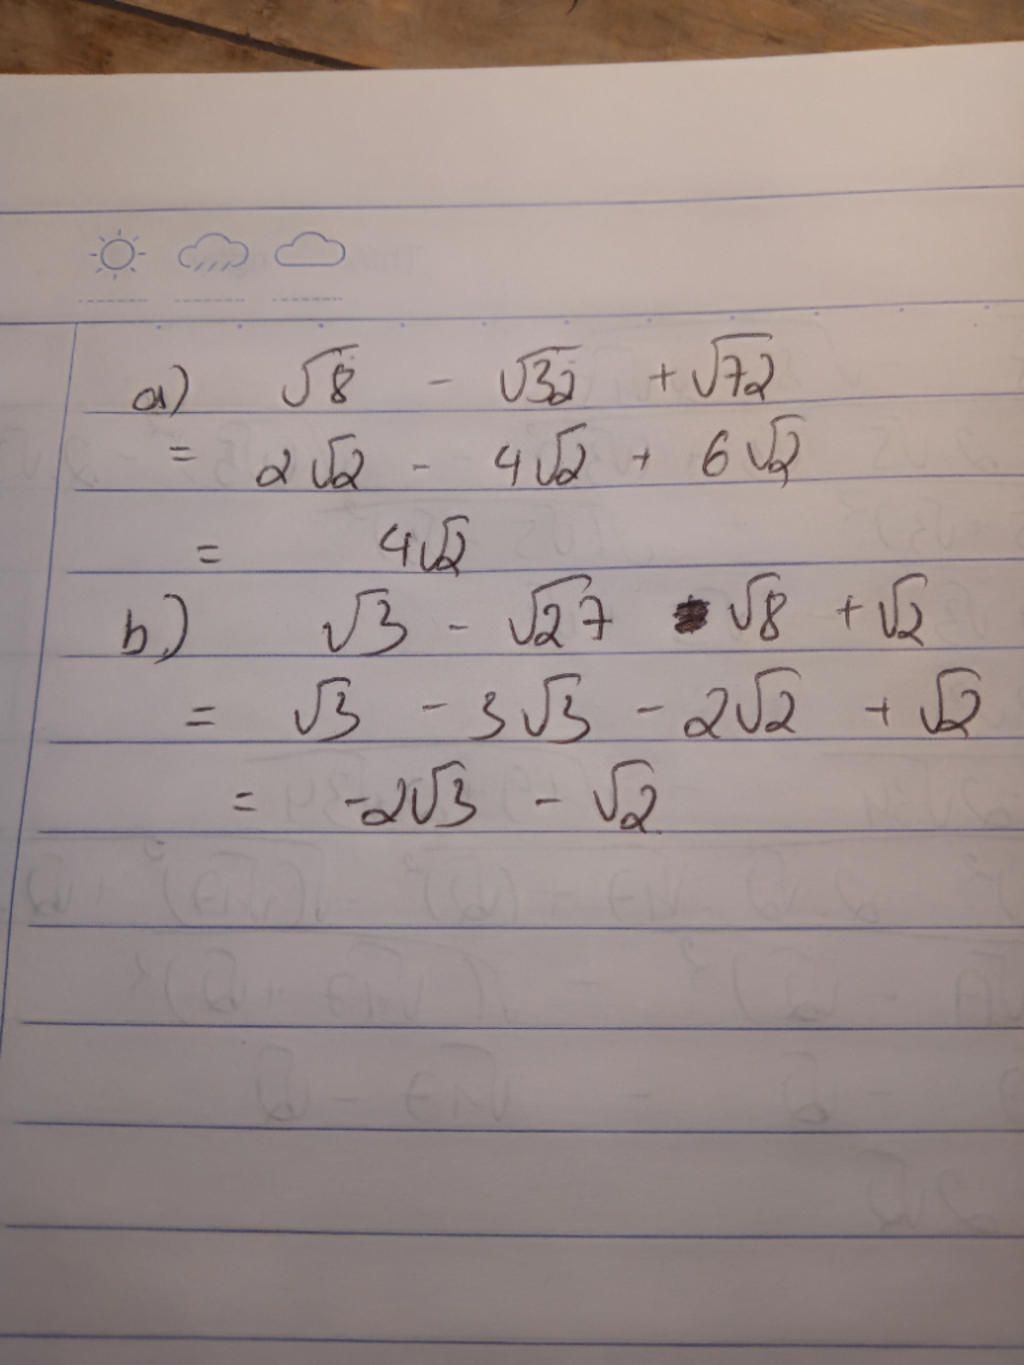 a) √8 - √32 + √72
= 2√2 - 4√2 + 6√2
= 4√2
b) √3 - √27 √8 + √2
= √3 - 3√3 - 2√2 + √2
= -2√3 - √2